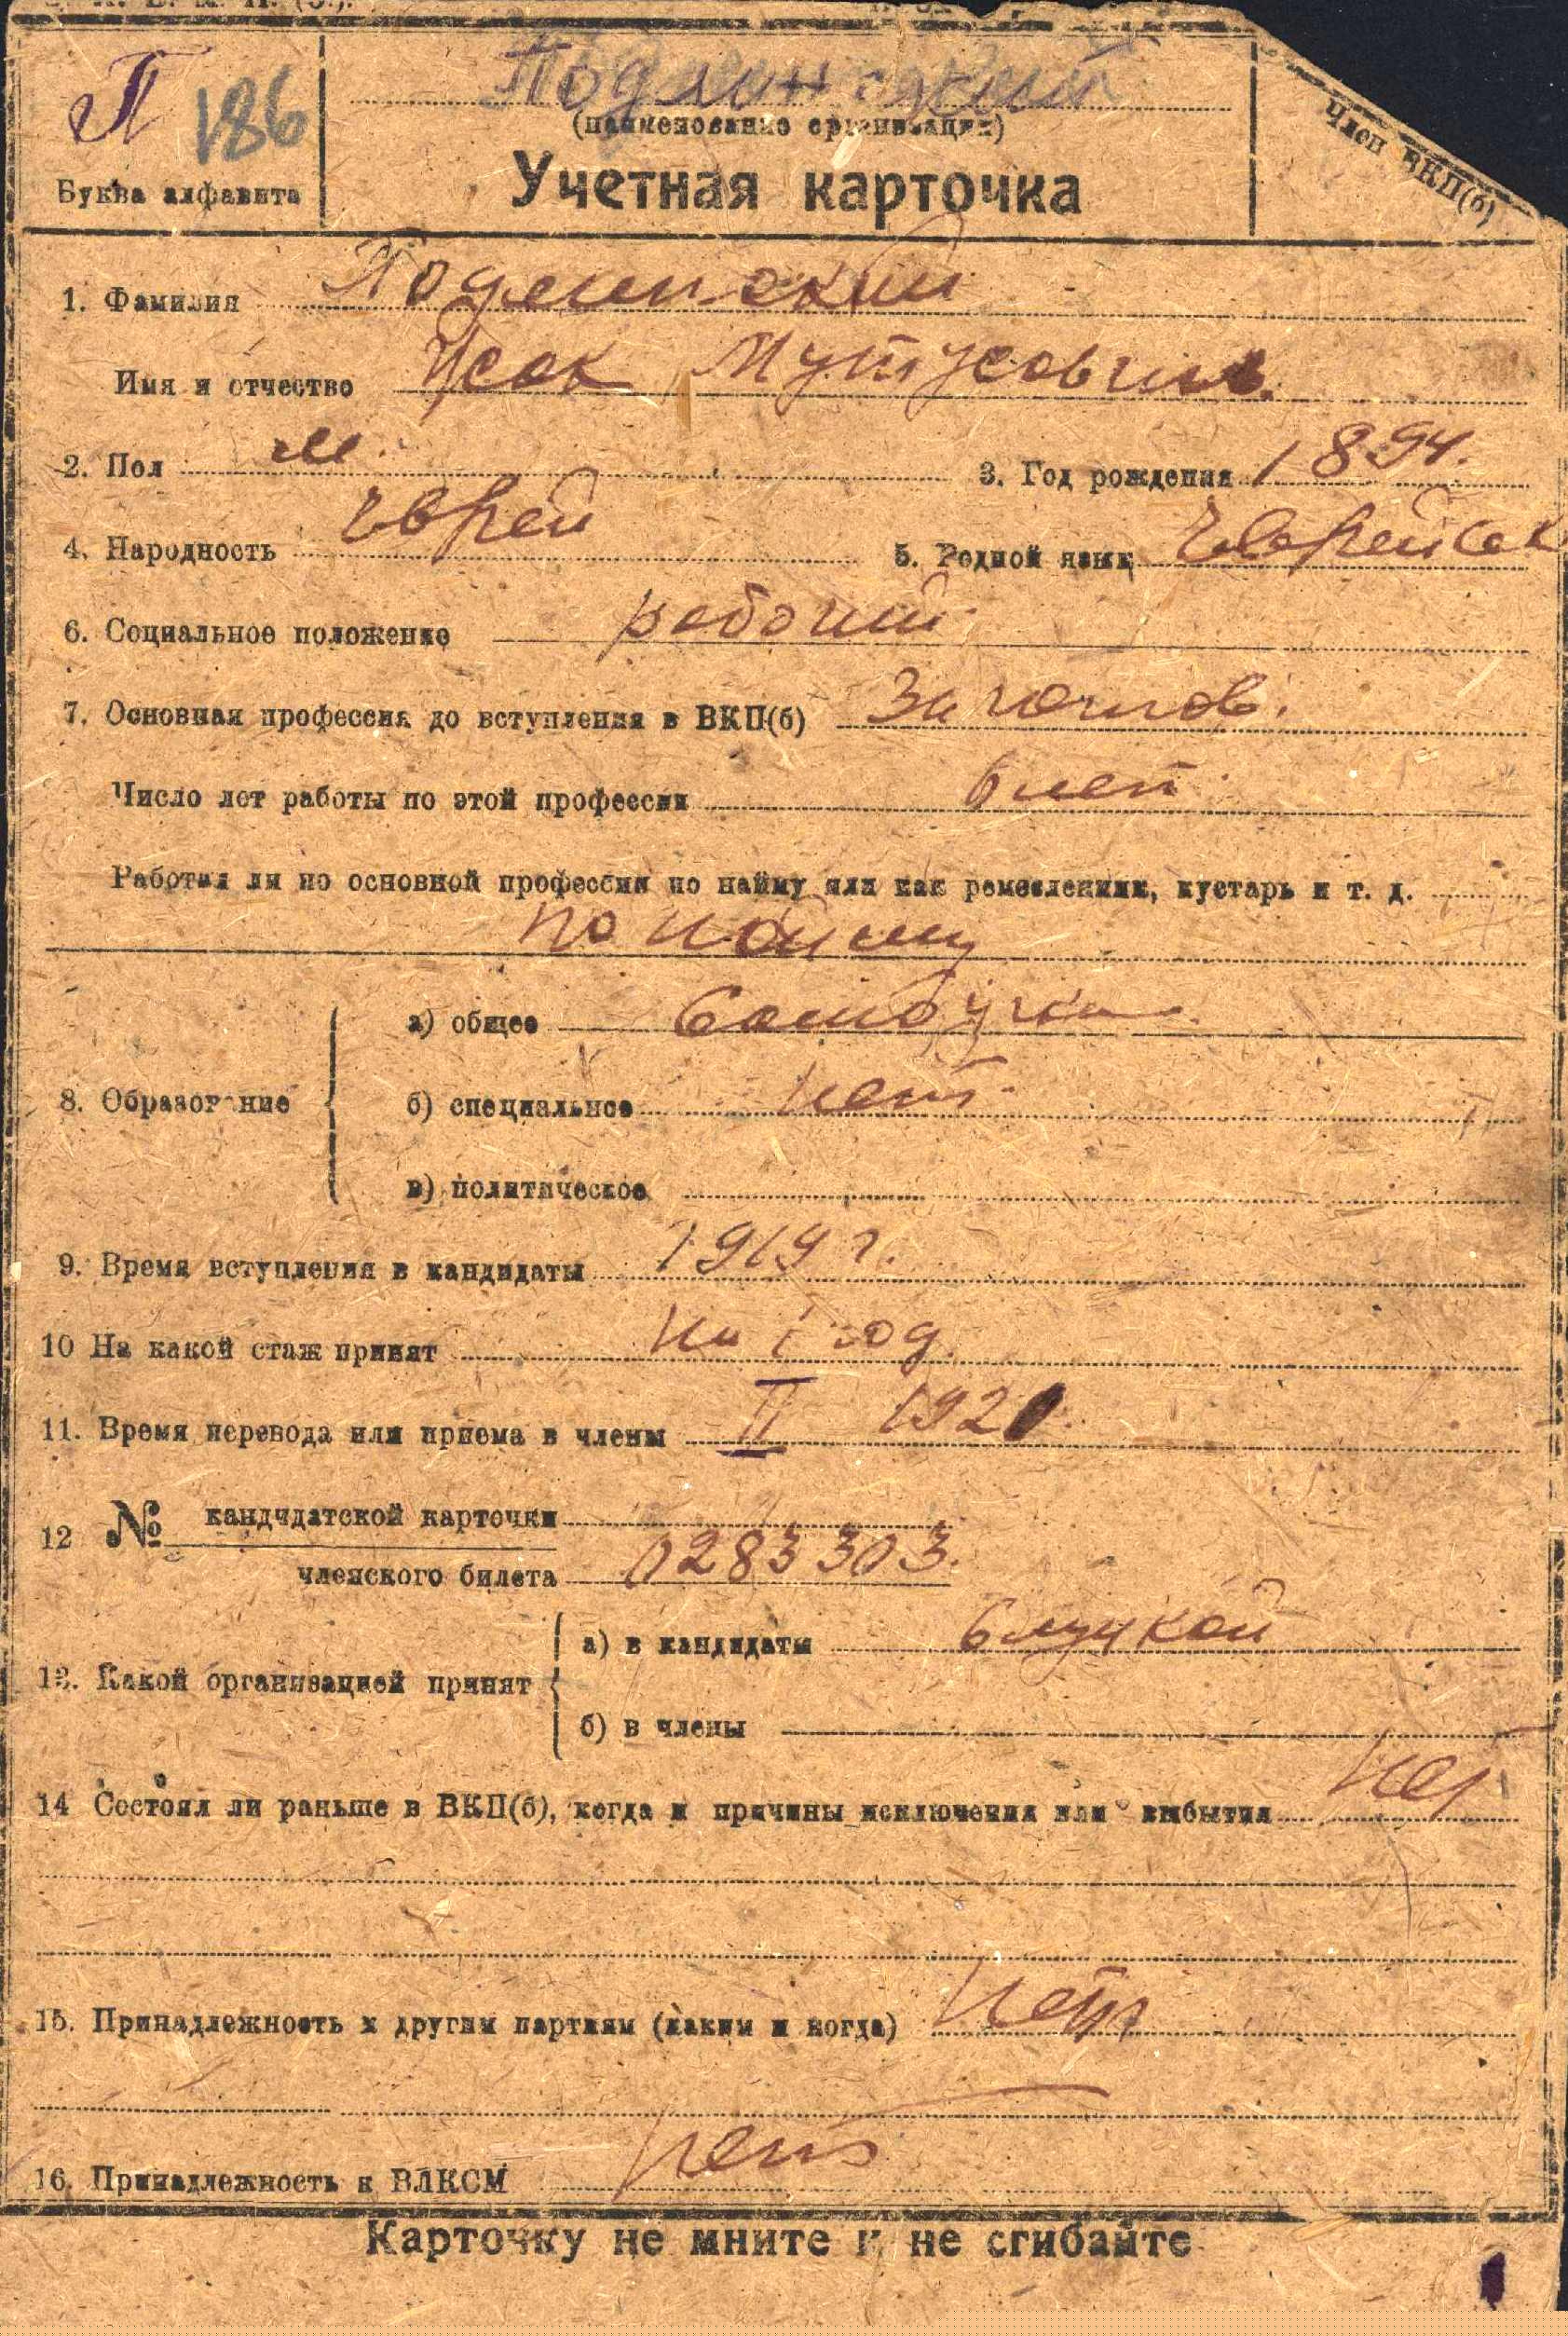 П 186
Подлинский
(наименование организации)
Буква алфавита
Учетная карточка
Член ВКП(б)
1. Фамилия Подлинский
Имя и отчество Исак Мутусович.
2. Пол м. 3. Год рождения 1894.
4. Народность Еврей 5. Родной язык Еврейск
6. Социальное положение рабочий
7. Основная профессия до вступления в ВКП(б)
Число лет работы по этой профессии 6 лет
Работал ли по основной профессии по найму или как ремесленник, кустарь и т. д.
по найму
8. Образование
а) общее Самоучка
б) специальное нет
в) политическое
9. Время вступления в кандидаты 1919 г.
10 На какой стаж принят на 1 год.
11. Время перевода или приема в члены II 1920.
12 № кандидатской карточки
членского билета 0283303.
13. Какой организацией принят
а) в кандидаты Слуцкой
б) в члены
14 Состоял ли раньше в ВКП(б), когда и причины исключения или выбытия нет
15. Принадлежность к другим партиям (каким и когда) нет
16. Принадлежность к ВЛКСМ нет
Карточку не мните и не сгибайте